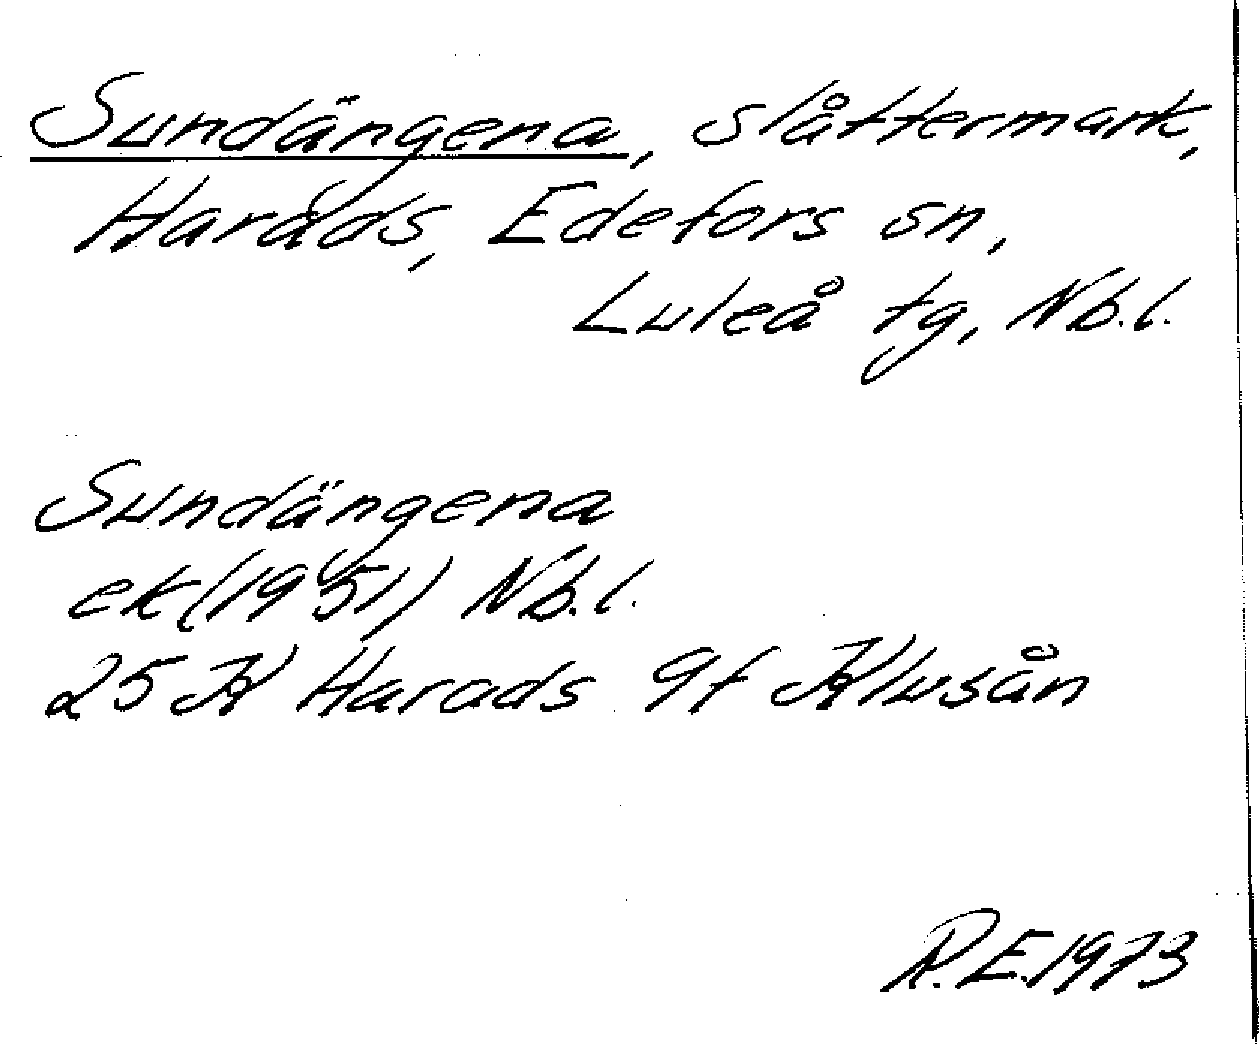 Sundängena, slåttermark,
Harads, Edefors sn,
Luleå tg, Nb.l.
Sundängena
ek(1951) Nb.l.
25 K Harads 9f Klusån
R.E.1973